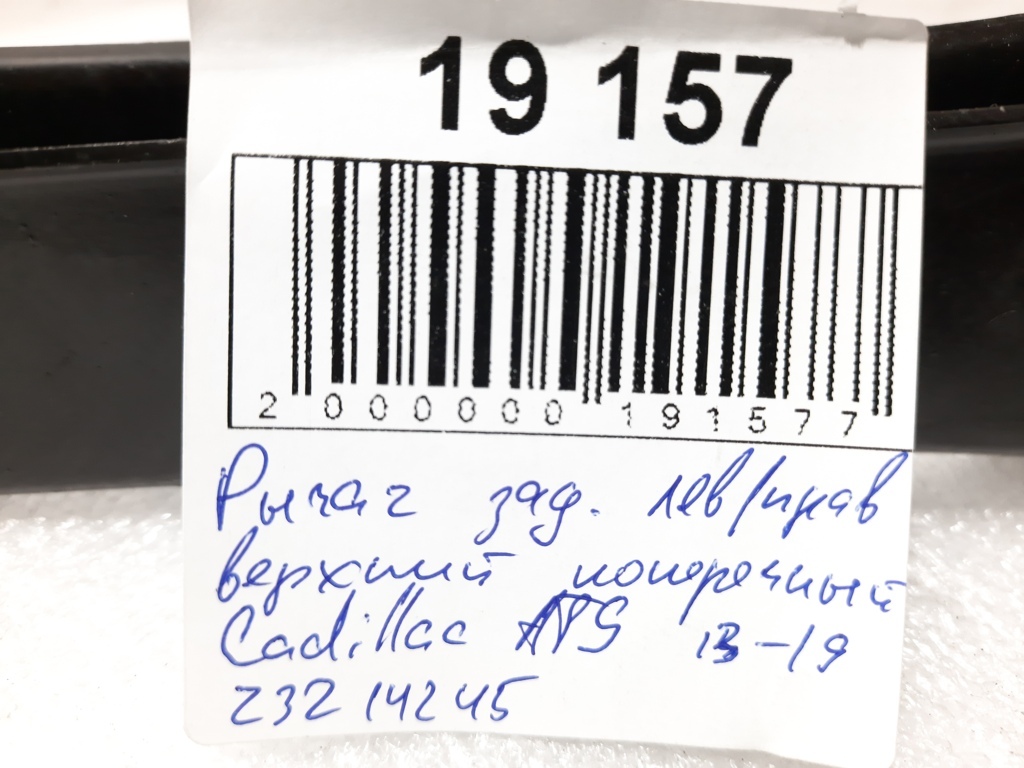 19 157
2 000000 191577
Рычаг зад. лев/прав
верхний поперечный
Cadillac ATS 13-19
23214245